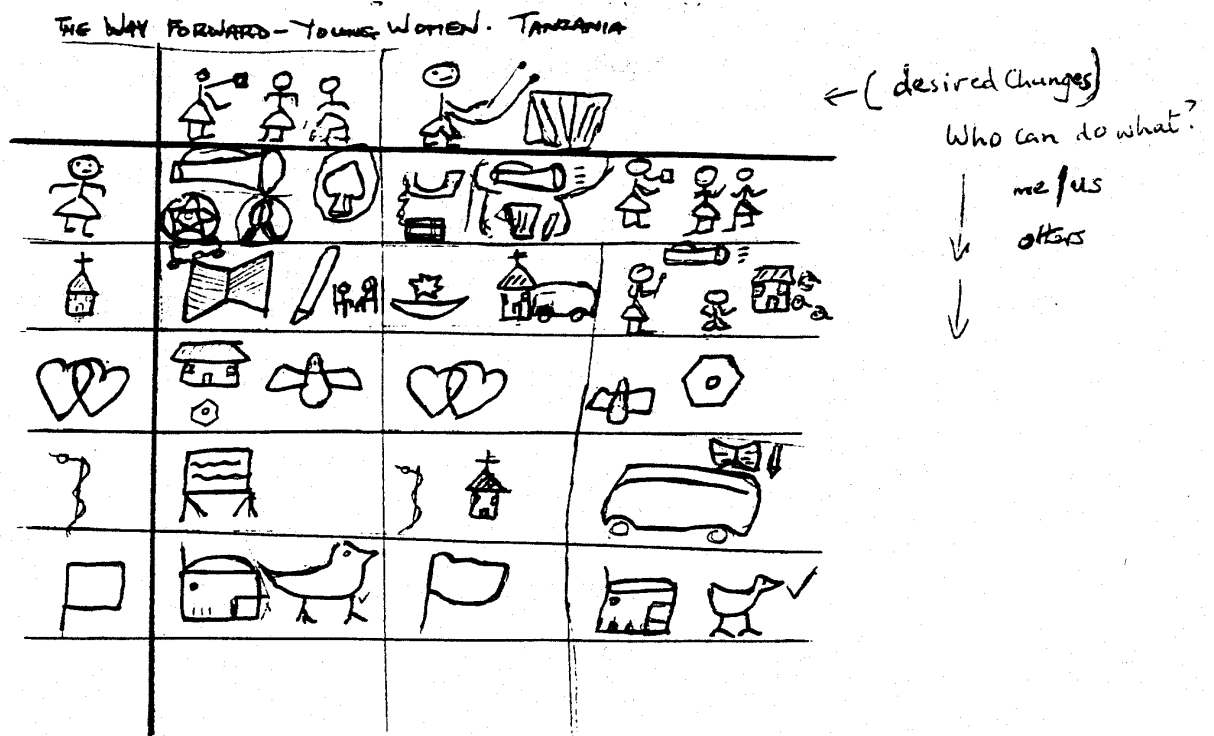 THE WAY FORWARD - YOUNG WOMEN. TANZANIA
← (desired Changes)
Who can do what?
me/us
others